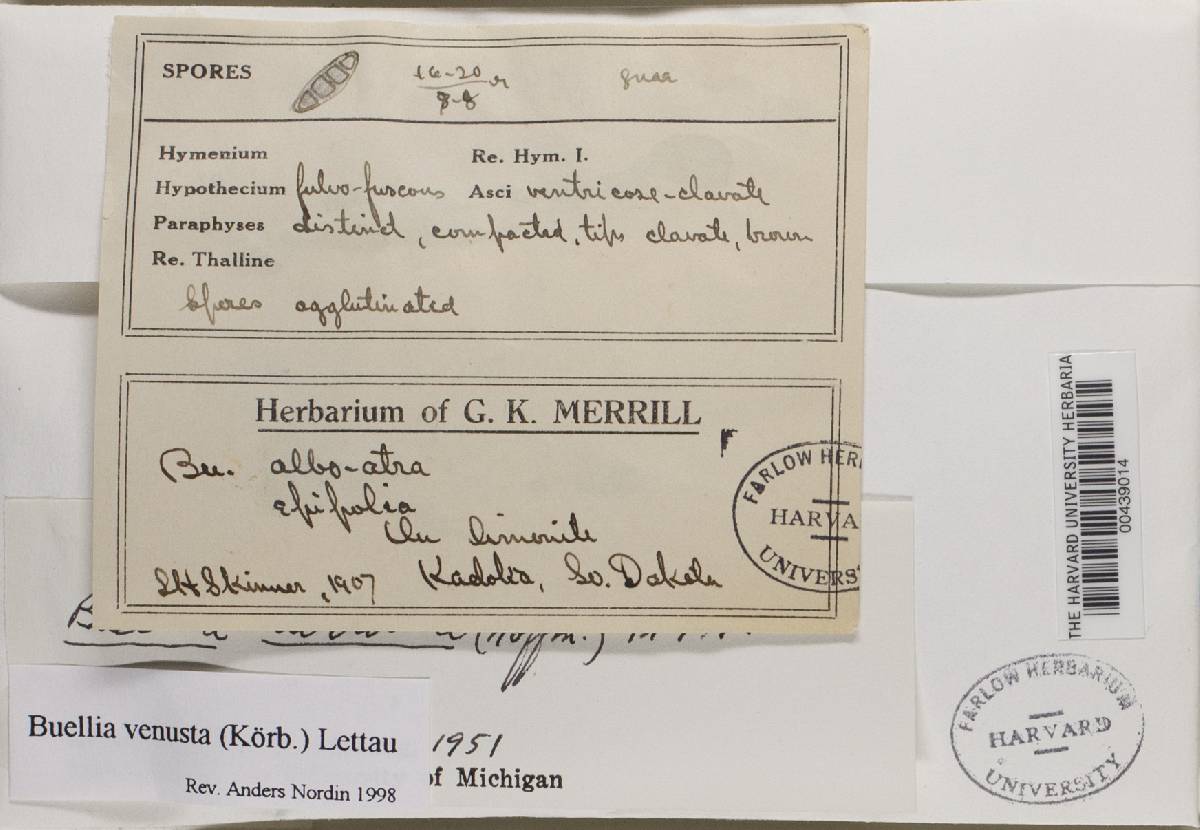 SPORES 16-20 / 8-8 µ guaa
Hymenium Re. Hym. I.
Hypothecium fulvo-fuscous Asci ventricose-clavate
Paraphyses distinct, compacted, tips clavate, brown
Re. Thalline
Spores agglutinated
Herbarium of G. K. MERRILL
Bu. albo-atra
epipolia
On limonite
SH Skinner, 1907 Kadoka, So. Dakota
FARLOW HER
HARVA
UNIVERS
(Hoffm.)
Buellia venusta (Körb.) Lettau
Rev. Anders Nordin 1998
1951
of Michigan
THE HARVARD UNIVERSITY HERBARIA
00439014
FARLOW HERBARIUM
HARVARD
UNIVERSITY